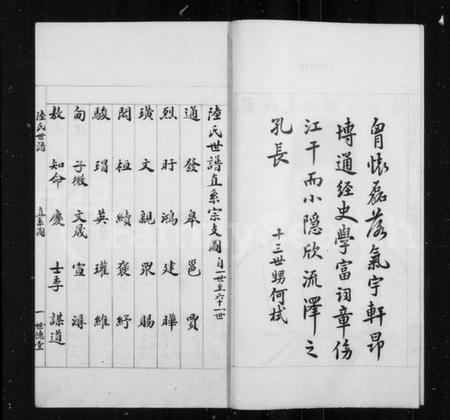 胷懷磊落氣宇軒昂
博通經史學富詞章傍
江干而小隱欣流澤之
孔長
十三世甥何栻
陸氏世譜直系宗支圖自一世至六十一世
通 發 皋 邕 賈
烈 盱 鴻 建 曄
璜 文 親 眾 賜
閎 桓 續 褒 紓
駿 瑁 英 瓘 維
甸 子徵 文晟 宣 潯
敖 知命 慶 士季 謀道
陸氏世譜 直系圖 一 世德堂